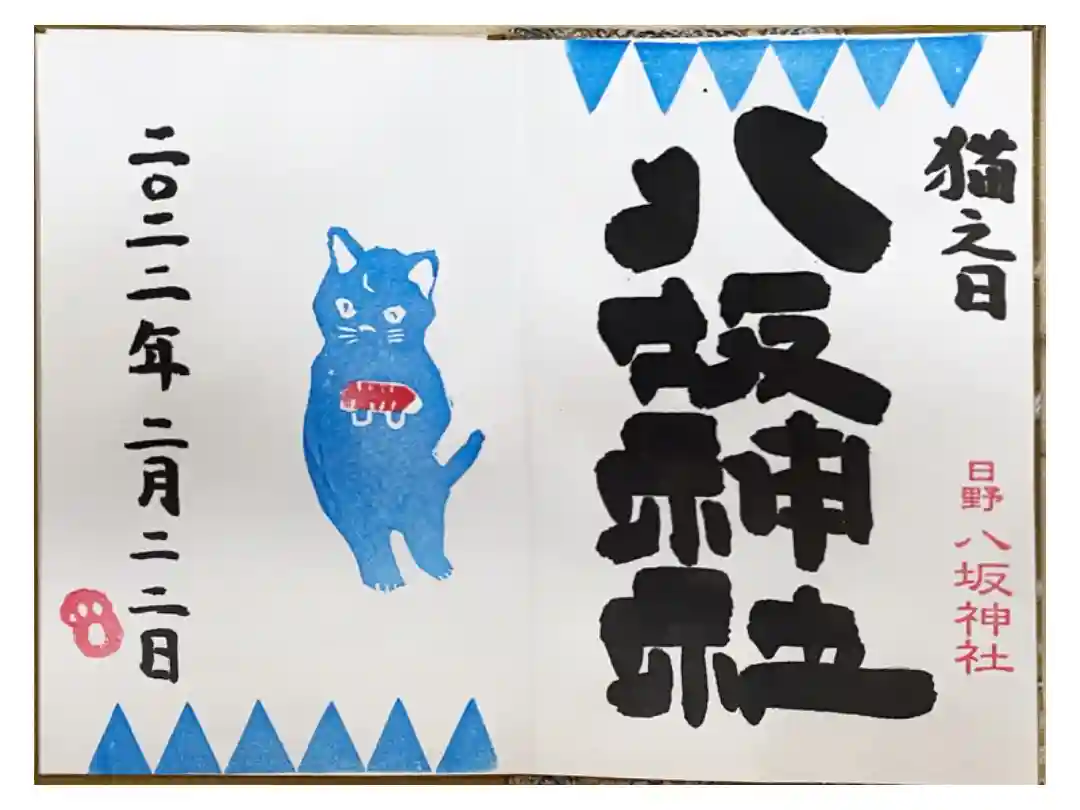 猫之日
日野八坂神社
八坂神社
二〇二二年二月二二日